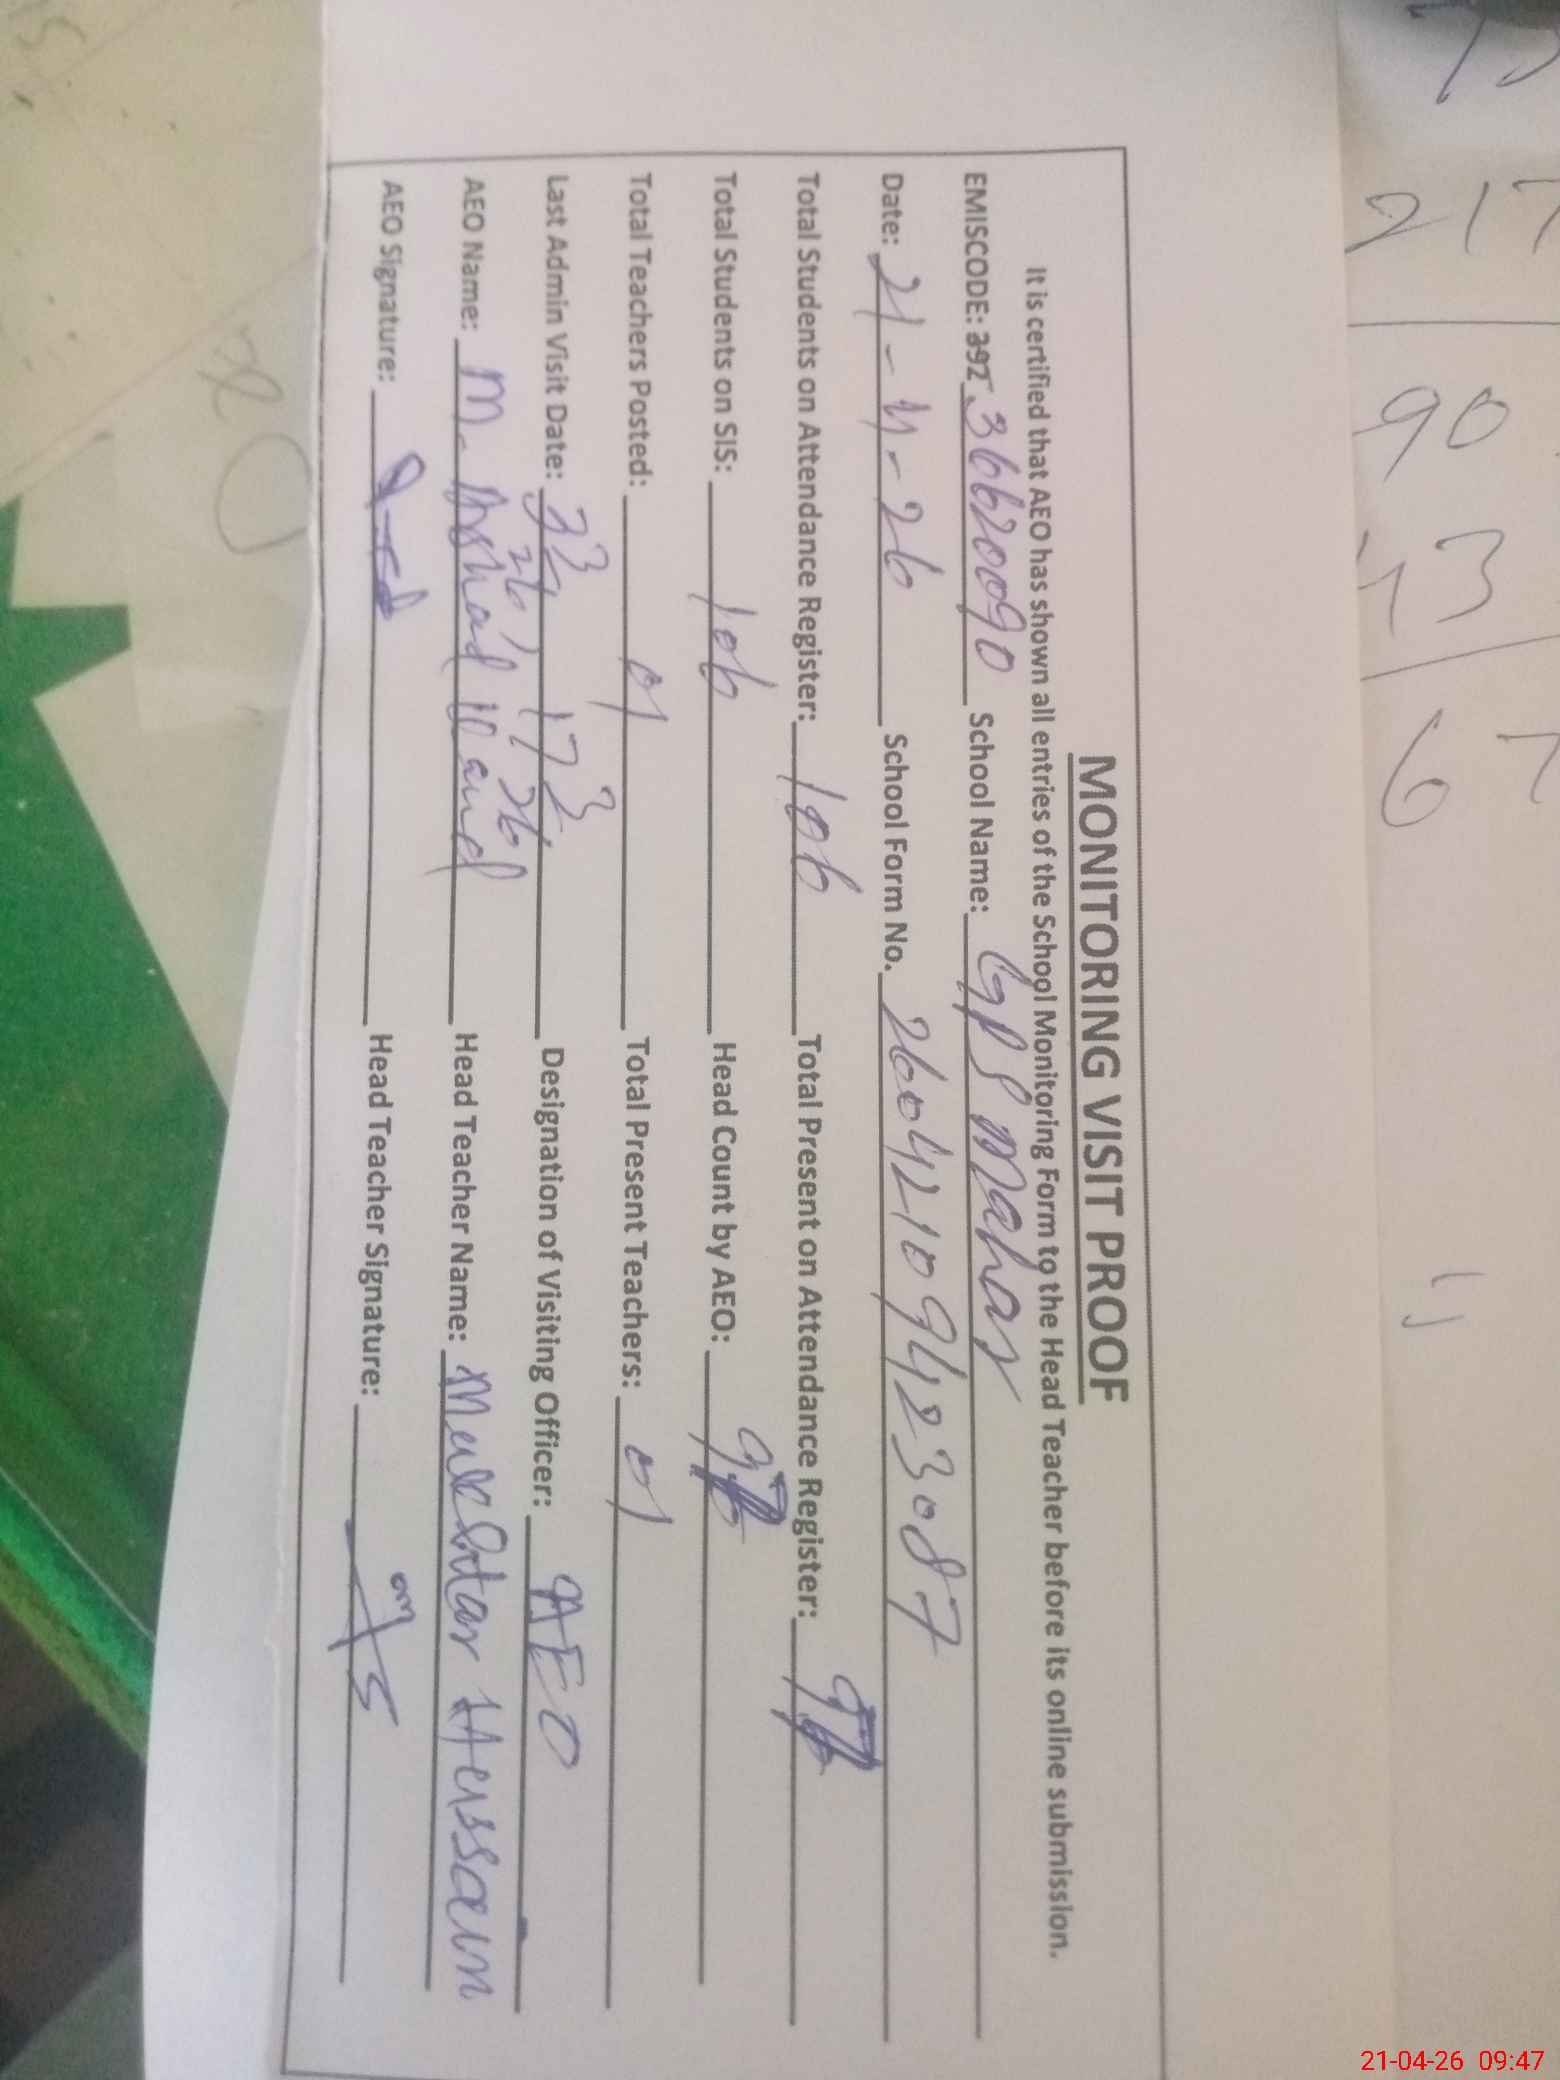 MONITORING VISIT PROOF
It is certified that AEO has shown all entries of the School Monitoring Form to the Head Teacher before its online submission.
EMISCODE: 392 36620090 School Name: GPS Mahar
Date: 21-4-26 School Form No. 26042109423087
Total Students on Attendance Register: 106 Total Present on Attendance Register:
Total Students on SIS: 106 Head Count by AEO:
Total Teachers Posted: 01 Total Present Teachers: 01
Last Admin Visit Date: Designation of Visiting Officer: AEO
AEO Name: M. Head Teacher Name: Hussain
AEO Signature: Head Teacher Signature:
21-04-26 09:47